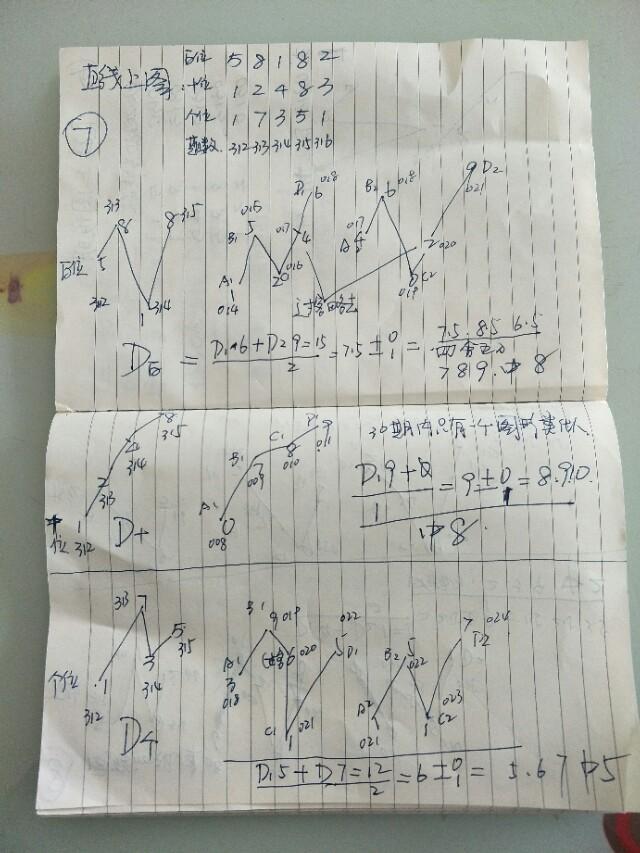 直线上图. 百位 5 8 1 8 2
十位 1 2 4 8 3
⑦ 个位 1 7 3 5 1
期数. 312 313 314 315 316
百位 5 312 8 313 1 314 8 315
A1 1 014 B1 5 015 2 016 4 017 D1 6 018
A2 017 B2 6 018 C2 019 7 020 9 D2 021
D百 = D1 6 + D2 9 = 15 / 2 = 7.5 ± 0 1 = 7.5 8.5 6.5
7 8 9. 中 8
1 312 2 313 4 314 8 315
十位 D十
A1 0 008 B1 009 C1 8 010 D1 9 011
30期内只有一个图形类似.
D1 9 + 0 / 1 = 9 ± 0 1 = 8.9.0.
中 8.
个位 1 312 7 313 3 314 5 315
D个
A1 3 018 B1 9 019 6 020 C1 1 021 5 D1 022
A2 021 B2 5 022 C2 1 023 7 D2 024
D1 5 + D 7 = 12 / 2 = 6 ± 0 1 = 5.6 7 中 5